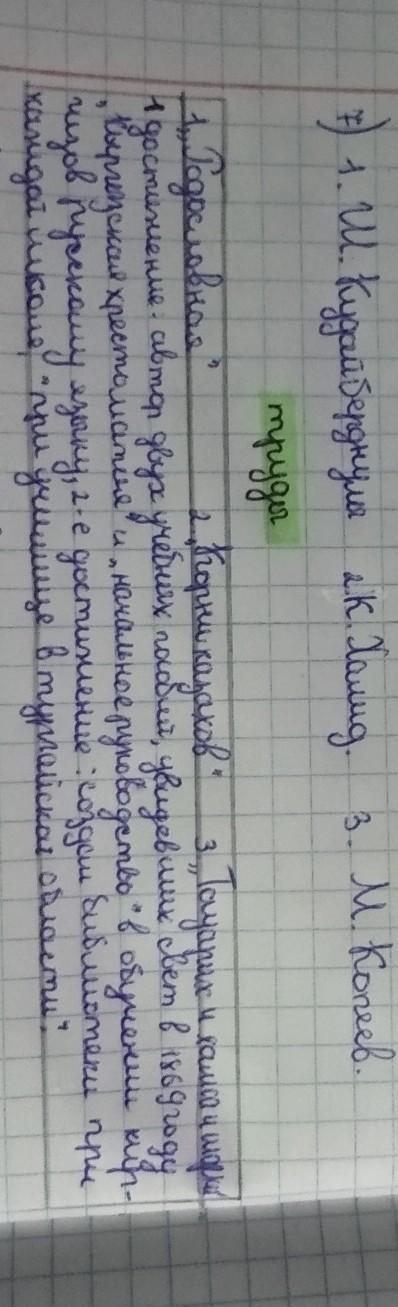 7) 1. Ш. Кудайбердиулы 2. К. Халид. 3. М. Копеев.
труды
1. „Родословная" 2. „Корни казахов" 3. „Тауарих и хамса и шарки
1 достижение: автор двух учебных пособий, увидевших свет в 1869 году
„Киргизская хрестоматия" и „начальное руководство" в обучении кир-
гизов русскому языку, 2-е достижение: создал библиотеки при
каждой школе, "при училище в тургайской области".